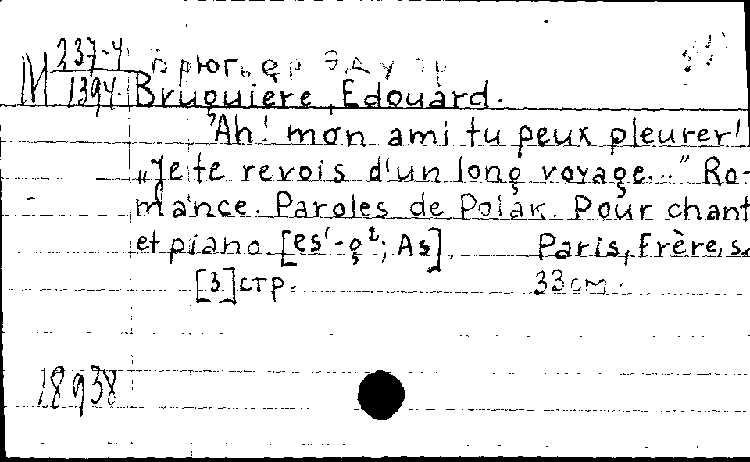 М 237-4/1394
Брюгьер Эдуар
Bruguiere, Edouard.
"Ah! mon ami tu peux pleurer!
„Je te revois d'un long voyage..." Ro-
mance. Paroles de Polak. Pour chant
et piano. [es¹-g²; As]. Paris, Frère, s.
[3]стр. 33см.
18938